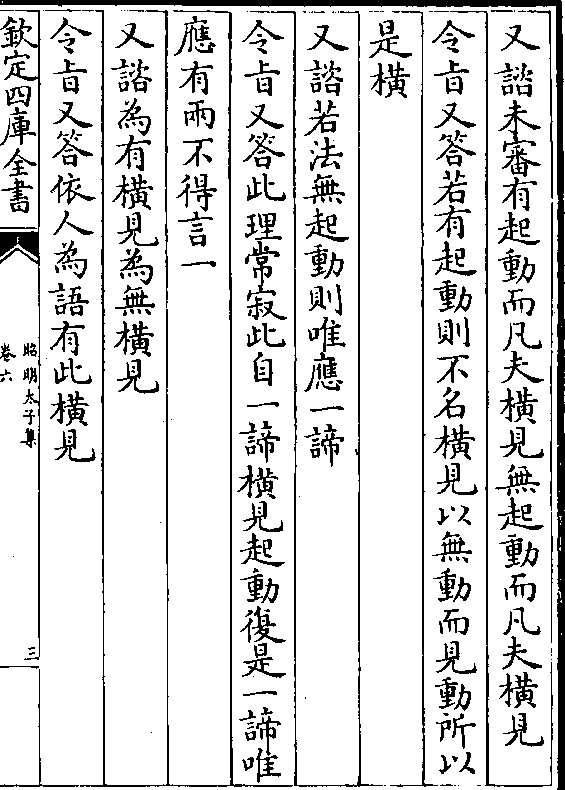 又諮未審有起動而凡夫橫見無起動而凡夫橫見
令旨又答若有起動則不名橫見以無動而見動所以
是橫
又諮若法無起動則唯應一諦
令旨又答此理常寂此自一諦橫見起動復是一諦唯
應有兩不得言一
又諮為有橫見為無橫見
令旨又答依人為語有此橫見
欽定四庫全書
昭明太子集
卷六
三